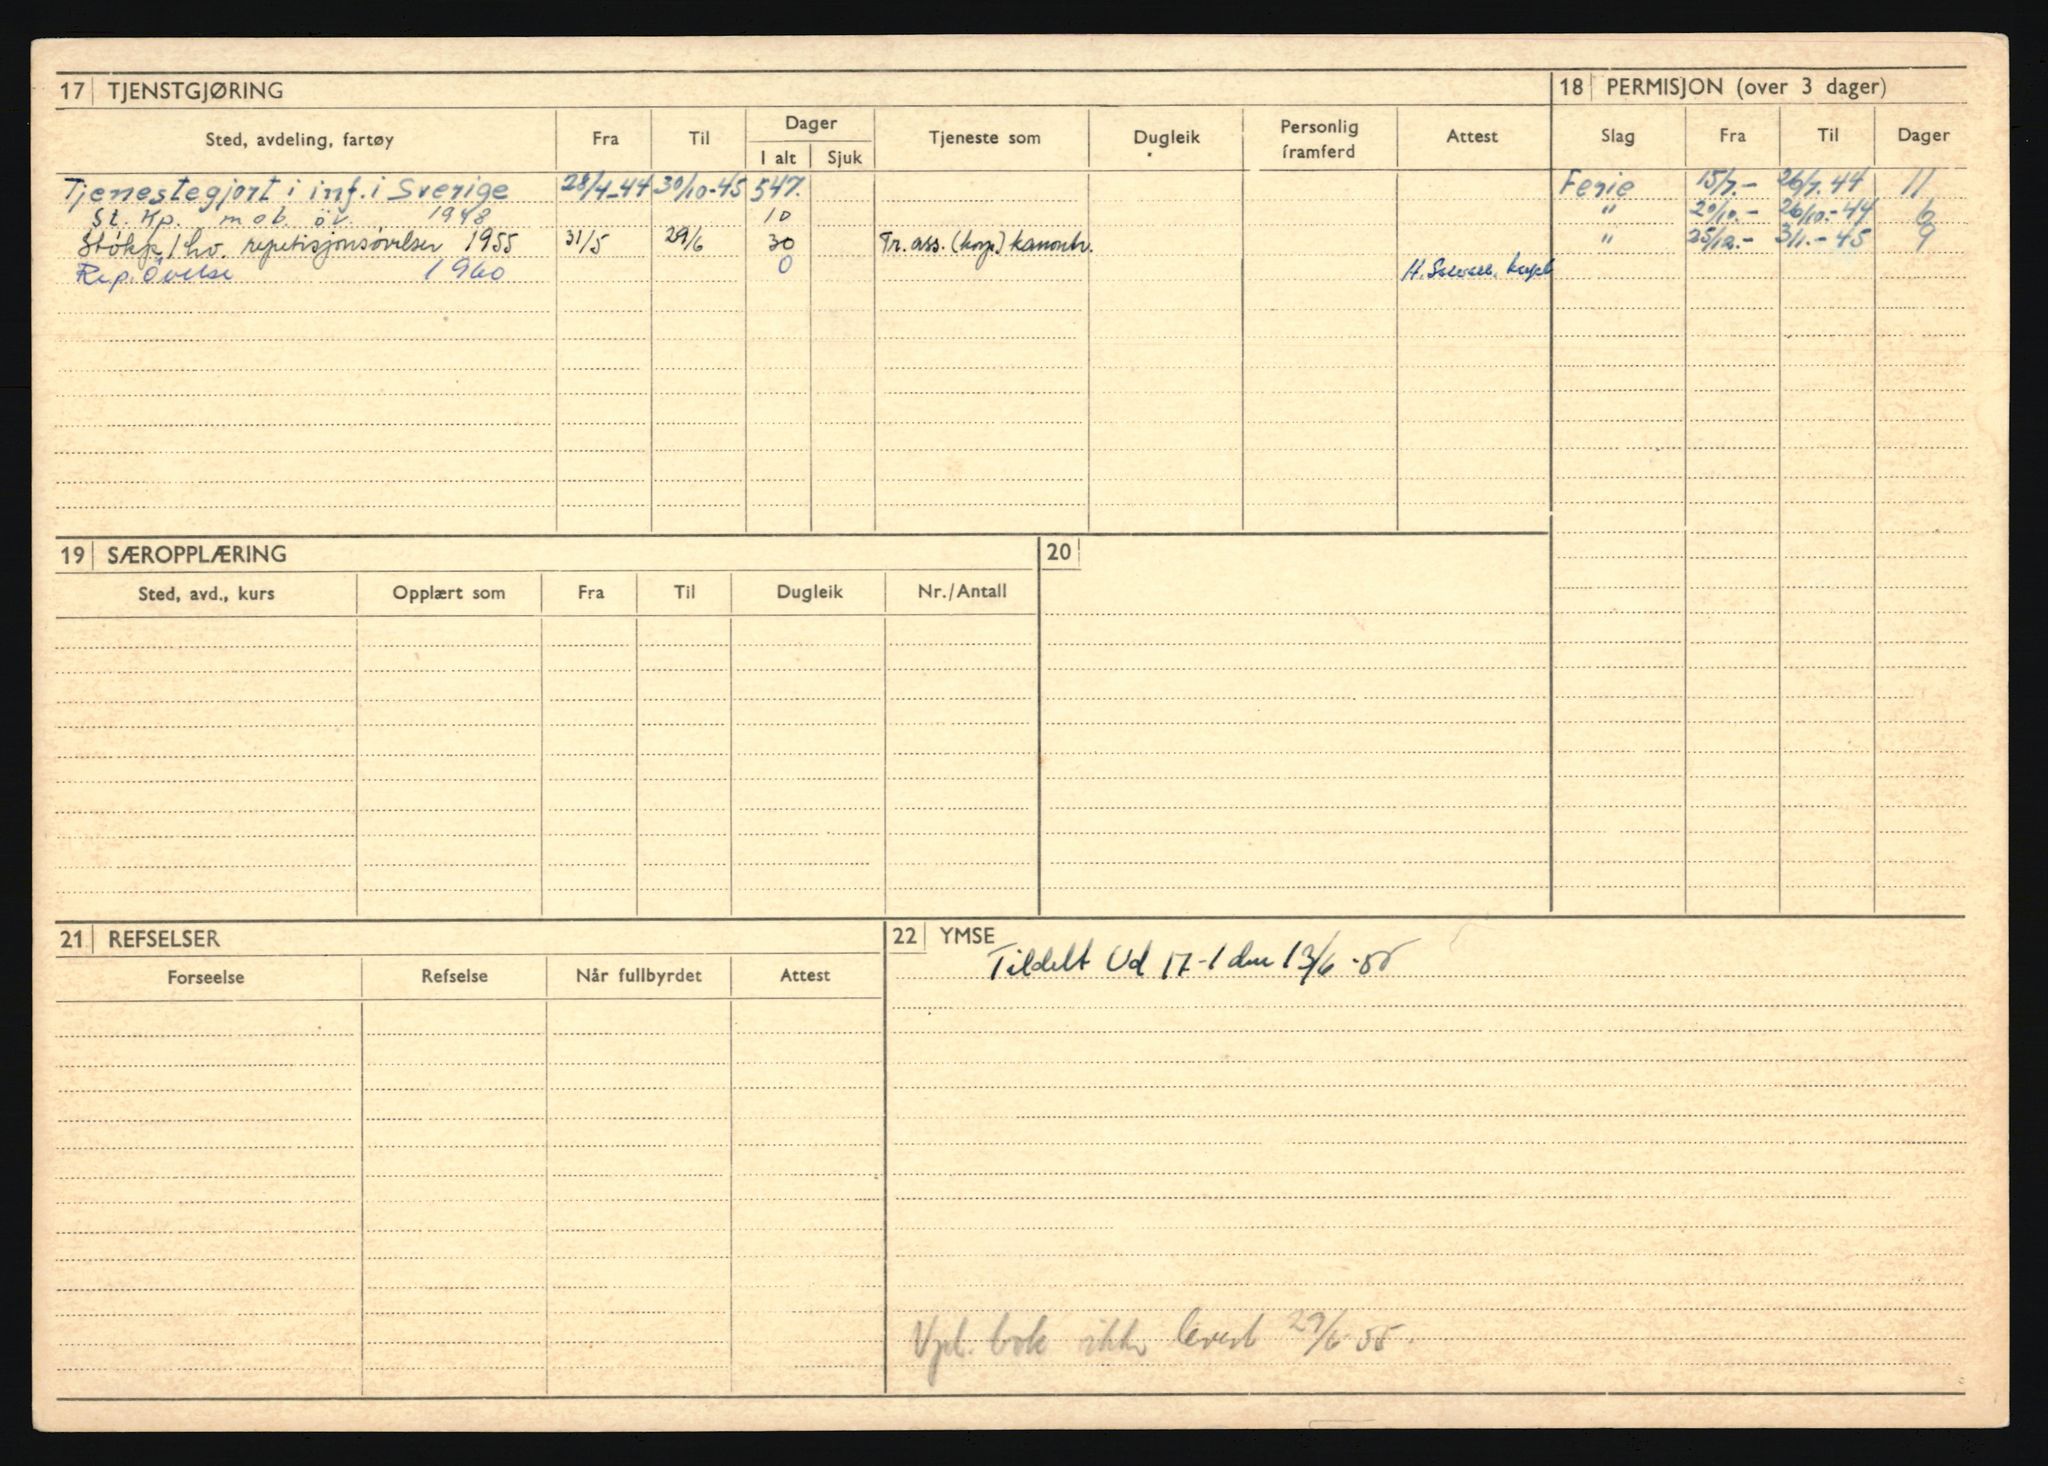 17 TJENSTGJØRING 18 PERMISJON (over 3 dager)
Sted, avdeling, fartøy Fra Til Dager Tjeneste som Dugleik Personlig framferd Attest Slag Fra Til Dager
I alt Sjuk
Tjenestegjort i inf. i Sverige 28/4-44 30/10-45 547. Ferie 15/7.- 26/7.44 11
St. Kp. mob. öv. 1948 10 " 20/10.- 26/10.-44 6
1955 31/5 29/6 30 Tr. ass. (korp.) kanontr. " 25/12.- 3/1.-45 9
Rep. Övelse 1960 0 H.
19 SÆROPPLÆRING 20
Sted, avd., kurs Opplært som Fra Til Dugleik Nr./Antall
21 REFSELSER 22 YMSE
Forseelse Refselse Når fullbyrdet Attest
Tildelt Ud 17-1 den 13/6-55
Vpl. bok ikke levert 29/6 55.